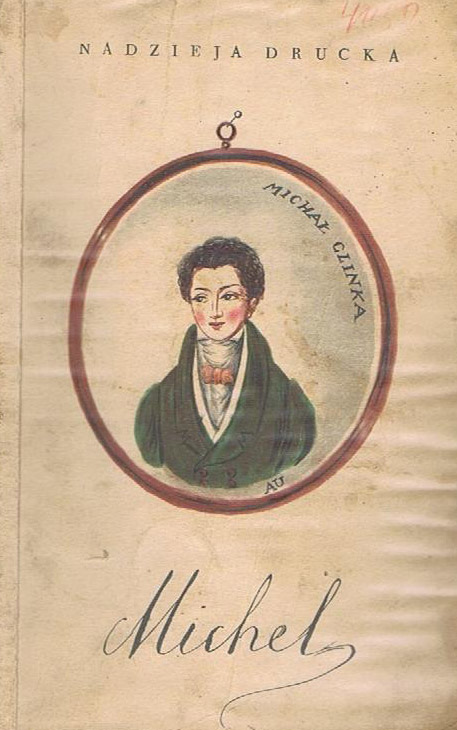 NADZIEJA DRUCKA
MICHAŁ GLINKA
AU
Michel